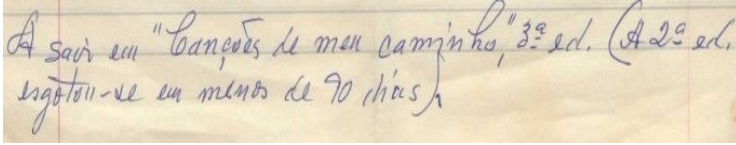 A sair em "Canções de meu caminho," 3ª ed. (A 2ª ed.
esgotou-se em menos de 90 dias).